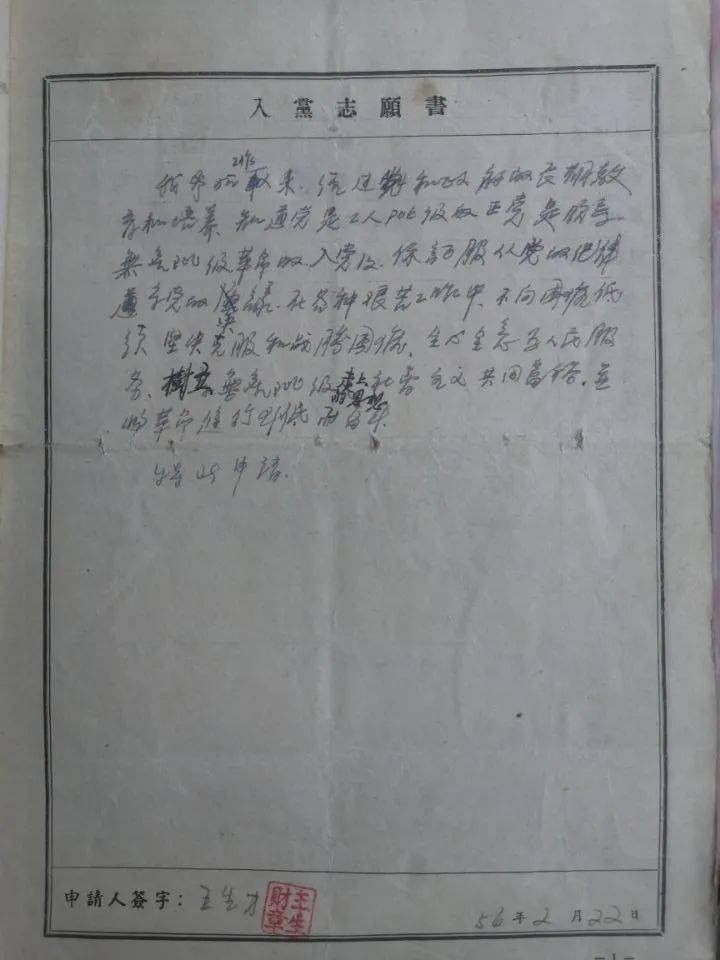 入黨志願書
工作
我参加以来.经过党和政府的长期教
育和培养.知道党是工人阶级的正党是领导
無产阶级革命的.入党后.保証服从党的纪律
遵守党的 在各种艰苦工作中.不向困难低
头 坚决克服和战勝困难、全心全意为人民服
务.樹立無产阶级 社会主义共同奋斗.並
将革命進行到底而奋斗.
特此申請.
申請人簽字：王生才
王生財章
56年2月22日
-1-